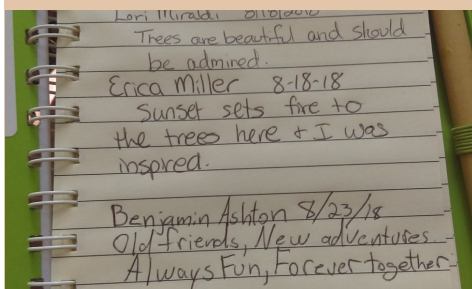 Lori Miraldi
Trees are beautiful and should
be admired.
Erica Miller 8-18-18
Sunset sets fire to
the trees here & I was
inspired.
Benjamin Ashton 8/23/18
Old friends, New adventures
Always Fun, Forever together